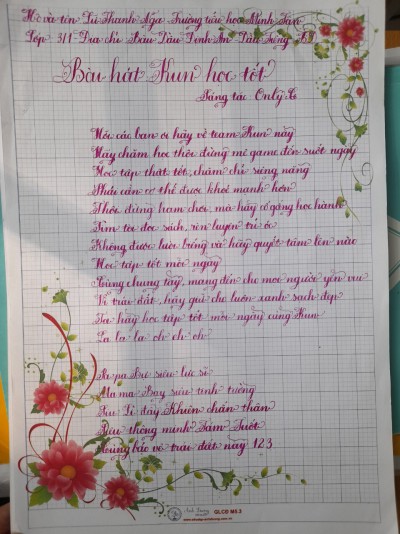 Họ và tên Lê Thanh Nga Trường tiểu học Minh Tân
Lớp 3/1 Địa chỉ Bàu Dầu Định An Dầu Tiếng BD
Bài hát Kun học tốt
Sáng tác Only C
Này các bạn ơi hãy về team Kun này
Hãy chăm học thôi đừng mê game đến suốt ngày
Học tập thật tốt, chăm chỉ siêng năng
Phải cần cơ thể được khoẻ mạnh hơn
Thôi đừng ham chơi, mà hãy cố gắng học hành
Tìm tòi đọc sách, rèn luyện trí óc
Không được lười biếng và hãy quyết tâm lên nào
Học tập tốt mỗi ngày
Cùng chung tay, mang đến cho mọi người yên vui
Vì trái đất, hãy giữ cho luôn xanh sạch đẹp
Ta hãy học tập tốt mỗi ngày cùng Kun
La la la oh oh oh
Pa pa Bư siêu lực sĩ
Ma ma Bay siêu tinh tường
Sư Tỉ đây Khiên chắn thần
Siêu thông minh Tám Tuốt
Chúng bảo vệ trái đất này 123
GLCB Mã.3